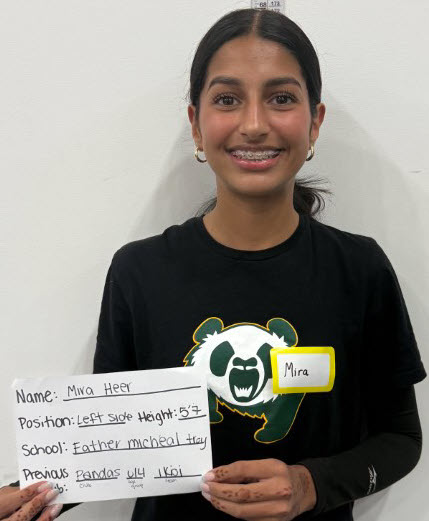 Name: Mira Heer
Position: Left side Height: 5'7
School: Father micheal troy
Previous Pandas u14 1Kpi
Club age group team
Mira